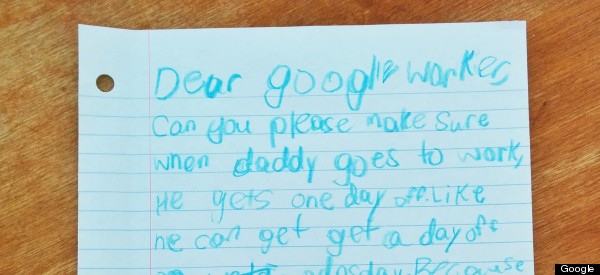 Dear google worker,
Can you please make sure
when daddy goes to work,
He gets one day off. Like
he can get get a day off
Because
Google